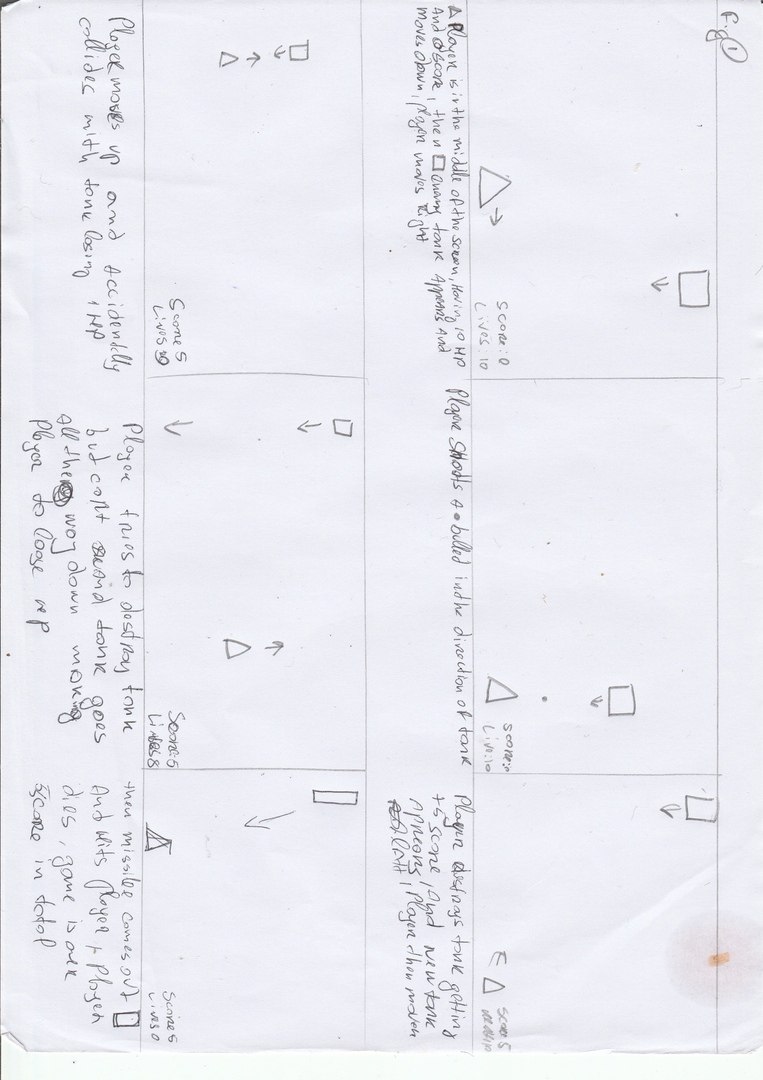 Fig 1
Score:0
Lives:10
△ Player is in the middle of the screen, Having 10 HP
And 0 score, then □ enemy tank Appears And
moves down, player moves Right
Score:0
Live:10
Player Shoots A bulled in the direction of tank
Score:5
Player destroys tank getting
+5 score, And new tank
Appears, Player then moves
Left
Score 5
Lives 9
Player moves up and Accidentlly
collides with tank losing 1 HP
Score:5
Lives 8
Player tries to destroy tank
but cant and tank goes
All the way down making
Player to loose HP
Score 5
Lives 0
then missile comes out □
And hits player + Player
dies, game is over
score in total